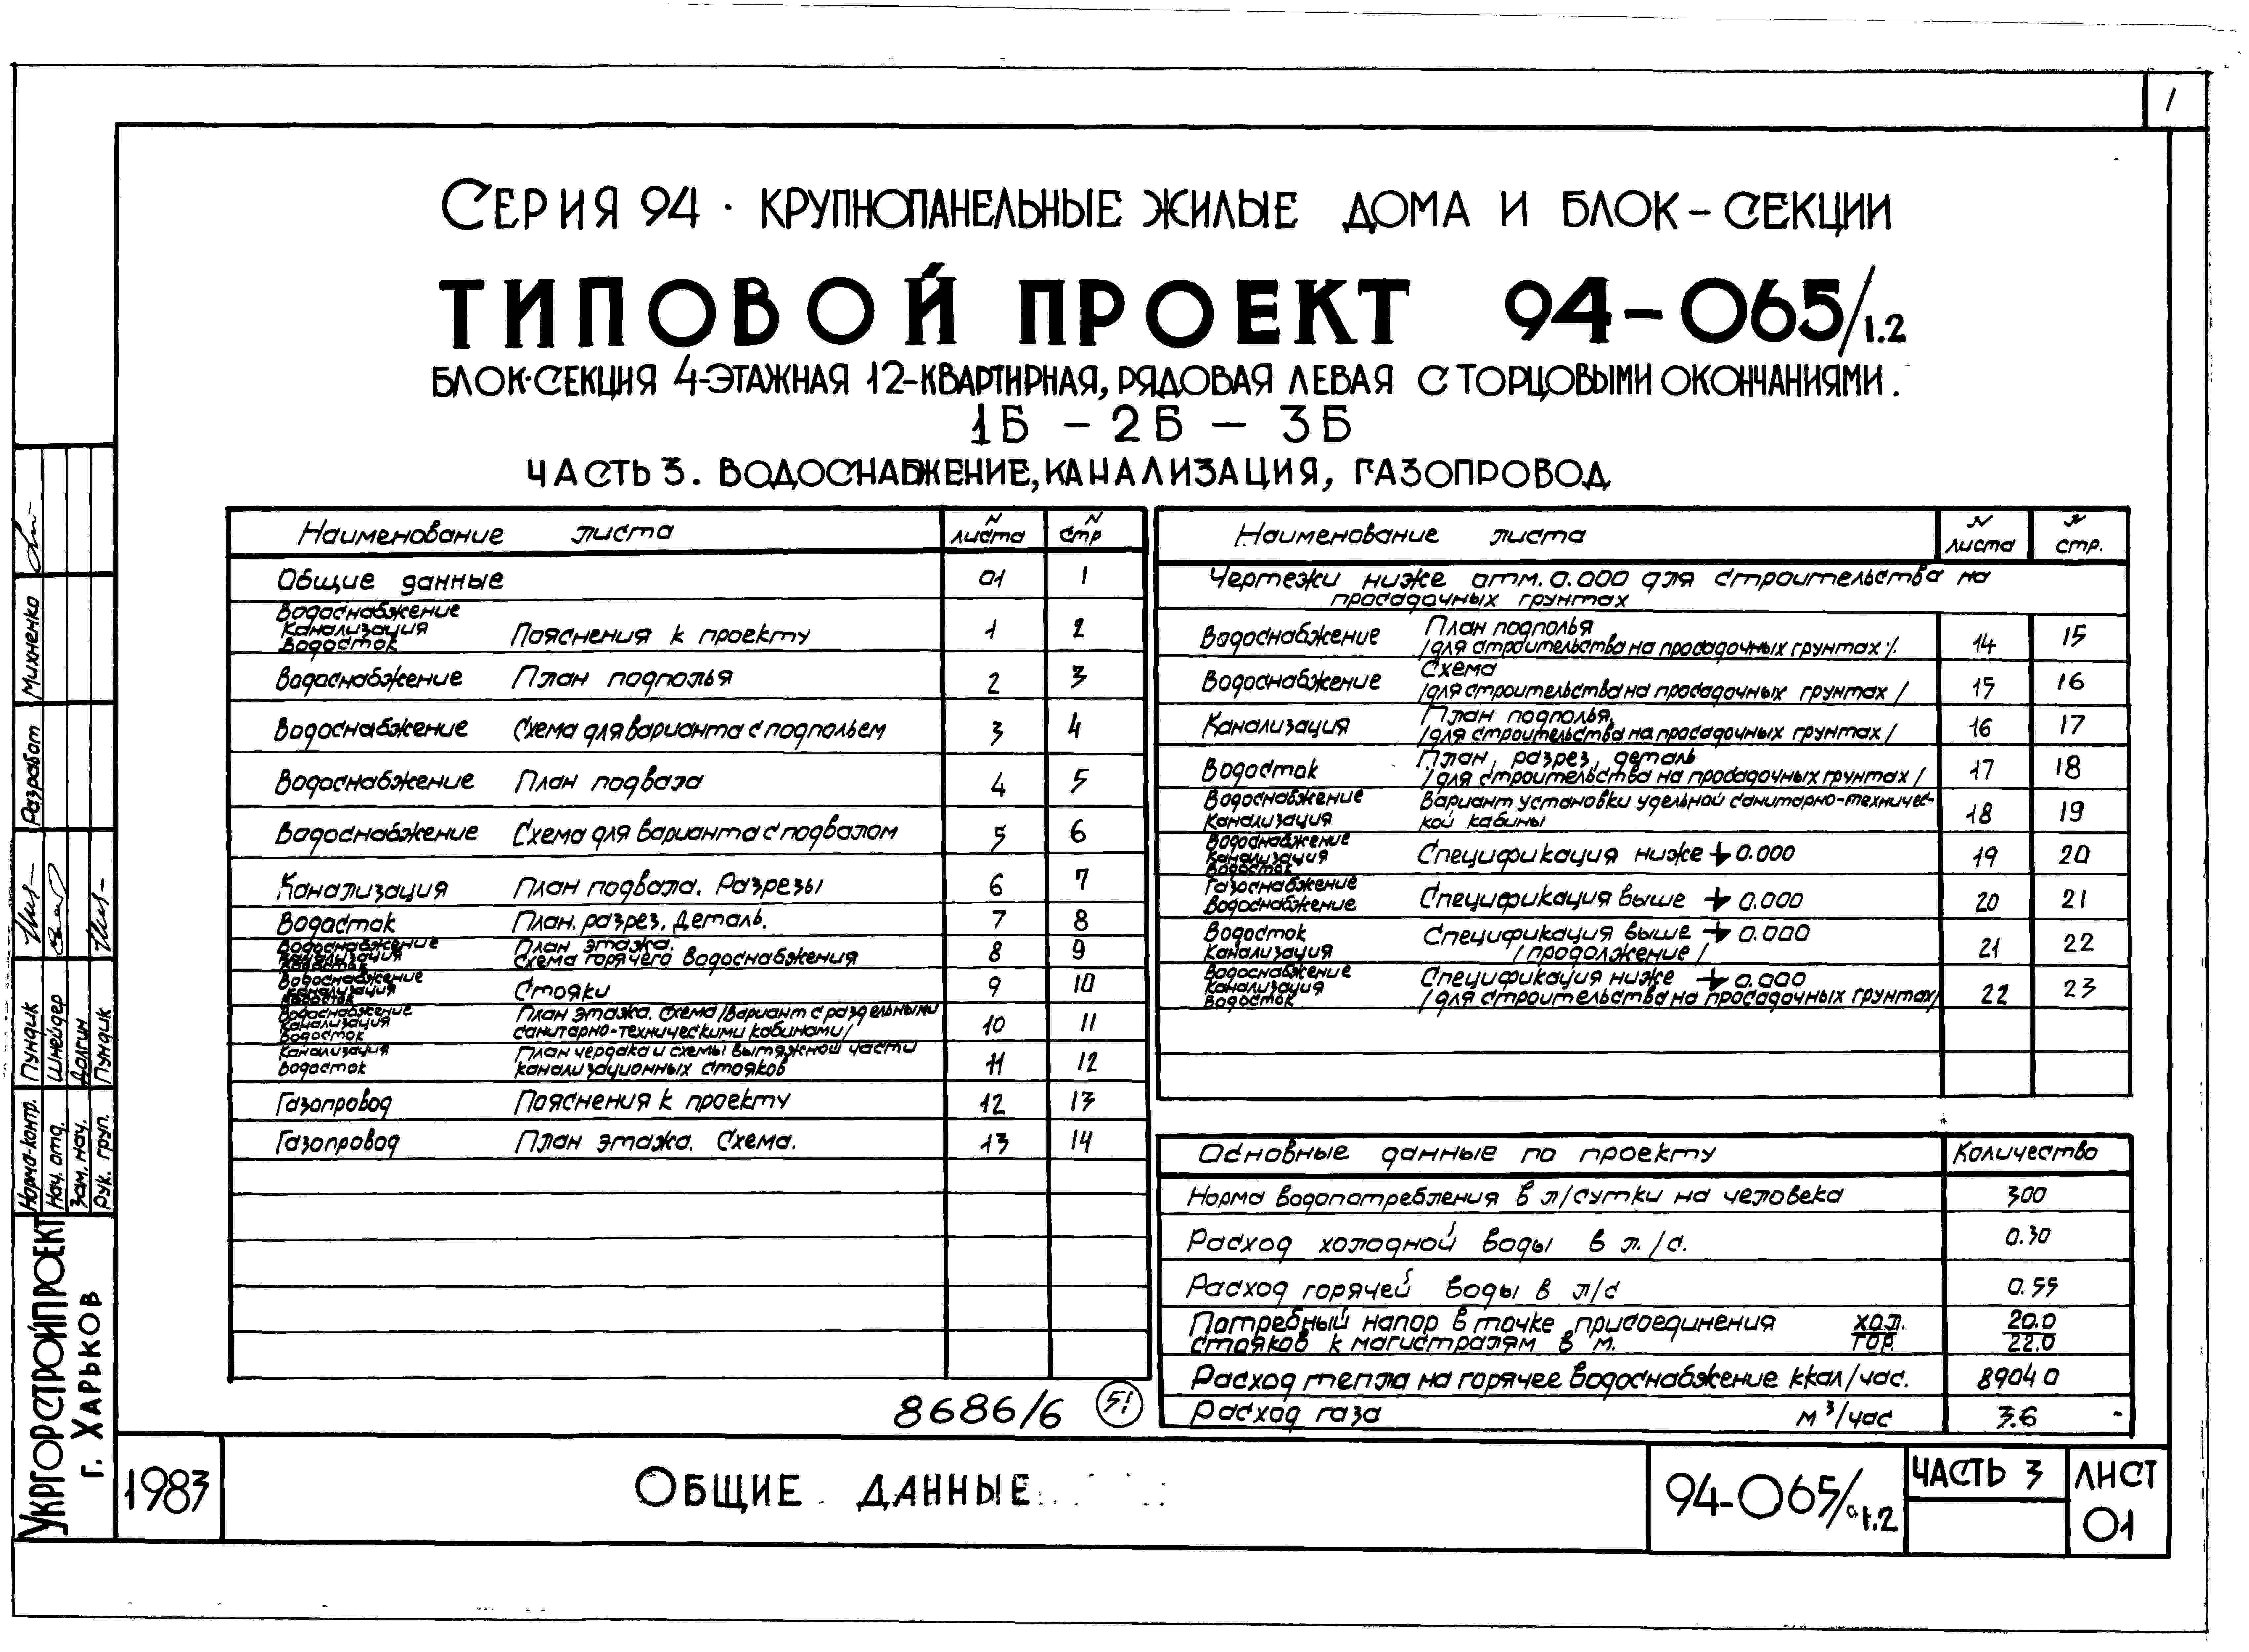 1
СЕРИЯ 94 · КРУПНОПАНЕЛЬНЫЕ ЖИЛЫЕ ДОМА И БЛОК-СЕКЦИИ
ТИПОВОЙ ПРОЕКТ 94-065/1.2
БЛОК-СЕКЦИЯ 4-ЭТАЖНАЯ 12-КВАРТИРНАЯ, РЯДОВАЯ ЛЕВАЯ С ТОРЦОВЫМИ ОКОНЧАНИЯМИ.
1Б - 2Б - 3Б
ЧАСТЬ 3. ВОДОСНАБЖЕНИЕ, КАНАЛИЗАЦИЯ, ГАЗОПРОВОД
Наименование листа N листа N стр
Общие данные 01 1
Водоснабжение
Канализация
Водосток Пояснения к проекту 1 2
Водоснабжение План подполья 2 3
Водоснабжение Схема для варианта с подпольем 3 4
Водоснабжение План подвала 4 5
Водоснабжение Схема для варианта с подвалом 5 6
Канализация План подвала. Разрезы 6 7
Водосток План. разрез. Деталь. 7 8
Водоснабжение План этажа.
Канализация Схема горячего водоснабжения 8 9
Водосток
Водоснабжение
Канализация Стояки 9 10
Водосток
Водоснабжение План этажа. Схема /Вариант с раздельными
Канализация санитарно-техническими кабинами/ 10 11
Водосток
Канализация План чердака и схемы вытяжной части
Водосток канализационных стояков 11 12
Газопровод Пояснения к проекту 12 13
Газопровод План этажа. Схема. 13 14
Наименование листа N листа N стр.
Чертежи ниже отм. 0.000 для строительства на
просадочных грунтах
Водоснабжение План подполья
/для строительства на просадочных грунтах/. 14 15
Водоснабжение Схема
/для строительства на просадочных грунтах/ 15 16
Канализация План подполья,
/для строительства на просадочных грунтах/ 16 17
Водосток План, разрез, деталь
/для строительства на просадочных грунтах/ 17 18
Водоснабжение Вариант установки удельной санитарно-техничес-
Канализация кой кабины 18 19
Водоснабжение
Канализация Спецификация ниже + 0.000 19 20
Водосток
Газоснабжение
Водоснабжение Спецификация выше + 0.000 20 21
Водосток Спецификация выше + 0.000
Канализация /продолжение/ 21 22
Водоснабжение Спецификация ниже + 0.000
Канализация /для строительства на просадочных грунтах/ 22 23
Водосток
Основные данные по проекту Количество
Норма водопотребления в л/сутки на человека 300
Расход холодной воды в л./с. 0.30
Расход горячей воды в л/с 0.55
Потребный напор в точке присоединения ХОЛ. 20.0
стояков к магистралям в м. ГОР. 22.0
Расход тепла на горячее водоснабжение ккал/час. 89040
Расход газа м³/час 3.6
8686/6 51
1983
ОБЩИЕ ДАННЫЕ
94-065/1.2
ЧАСТЬ 3
ЛИСТ
01
УКРГОРСТРОЙПРОЕКТ
г. ХАРЬКОВ
Норма-контр. Пундик
Нач. отд. Шнейдер
Зам. нач. Долгин
Рук. груп. Пундик
Разработ Михненко